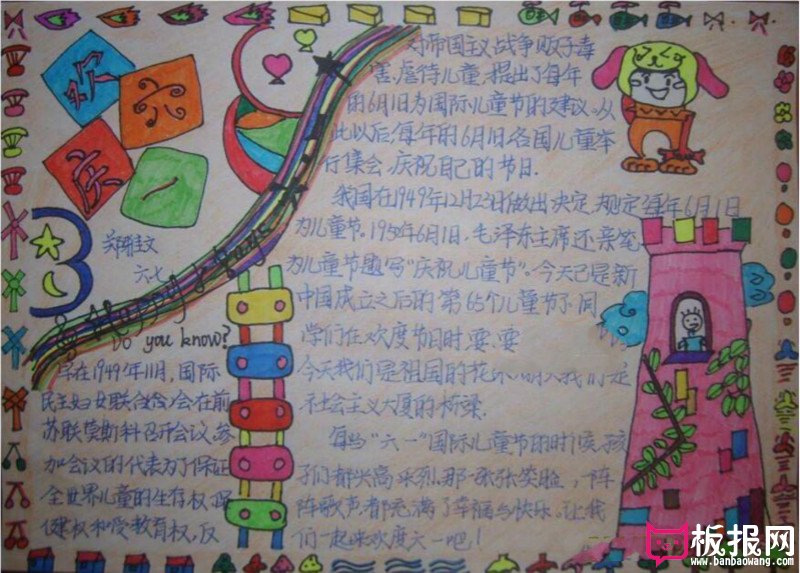 欢
六
庆
一
六.七
Happy days
Do you know?
早在1949年11月,国际
民主妇女联合会在前
苏联莫斯科召开会议,参
加会议的代表为了保证
全世界儿童的生存权,保
健权和受教育权,反
对帝国主义战争贩子毒
害、虐待儿童,提出了每年
的6月1日为国际儿童节的建议。从
此以后,每年的6月1日,各国儿童举
行集会,庆祝自己的节日.
我国在1949年12月23日做出决定,规定每年6月1日
为儿童节。1950年6月1日,毛泽东主席还亲笔
为儿童节题写“庆祝儿童节”。今天已是新
中国成立之后的第65个儿童节了,同
学们在欢度节日时,要
今天我们是祖国的花 我们是
社会主义大厦的桥梁.
每当“六一”国际儿童节的时候,孩
子们都兴高采烈,那一张张笑脸,阵
阵歌声,都充满了幸福与快乐。让我
们一起来欢度六一吧!
板报网
www.banbaowang.com